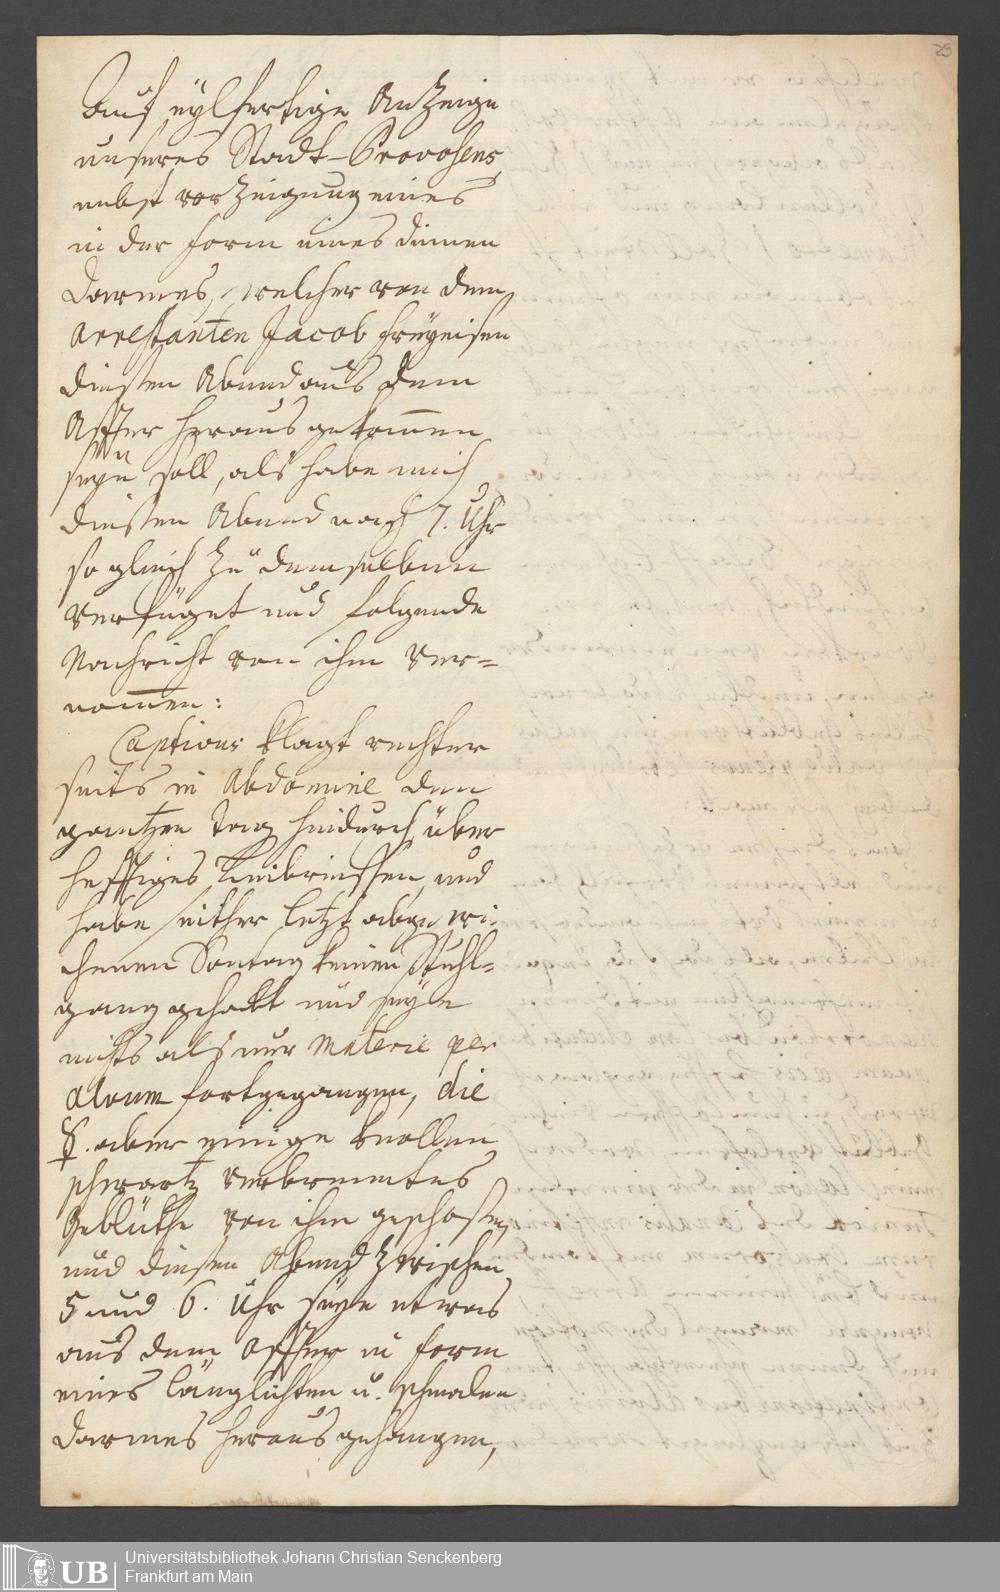 29
Auf eylfertige Anzeige
unseres Stadt-Provosens,
nebst vorzeigung eines
in der form eines dünnen
Darmes, welcher von dem
Arrestanten Jacob freyeisen
diesen Abend aus dem
Affter heraus gekom̄en
seyn soll, als habe mich
diesen Abend nach 7. Uhr
so gleich zu demselben
verfüget und folgende
Nachricht von ihm ver=
nom̄en:
Captivus klagt rechter
seits in Abdomine den
gantzen Tag hindurch über
hefftiges Leibreissen, und
habe seither letzt abgewi-
chenen Sontag keinen Stuhl=
gang gehabt und seye
nichts als nur Materie per
alvum fortgegangen, die
aber einige knollen
schwartz verbrenntes
Geblüthe von ihm geschossen,
und diesen Abend zwischen
5 und 6. Uhr seye etwas
aus dem Affter in form
eines länglichten u. schmalen
Darmes heraus gehangen,
UB
Universitätsbibliothek Johann Christian Senckenberg
Frankfurt am Main